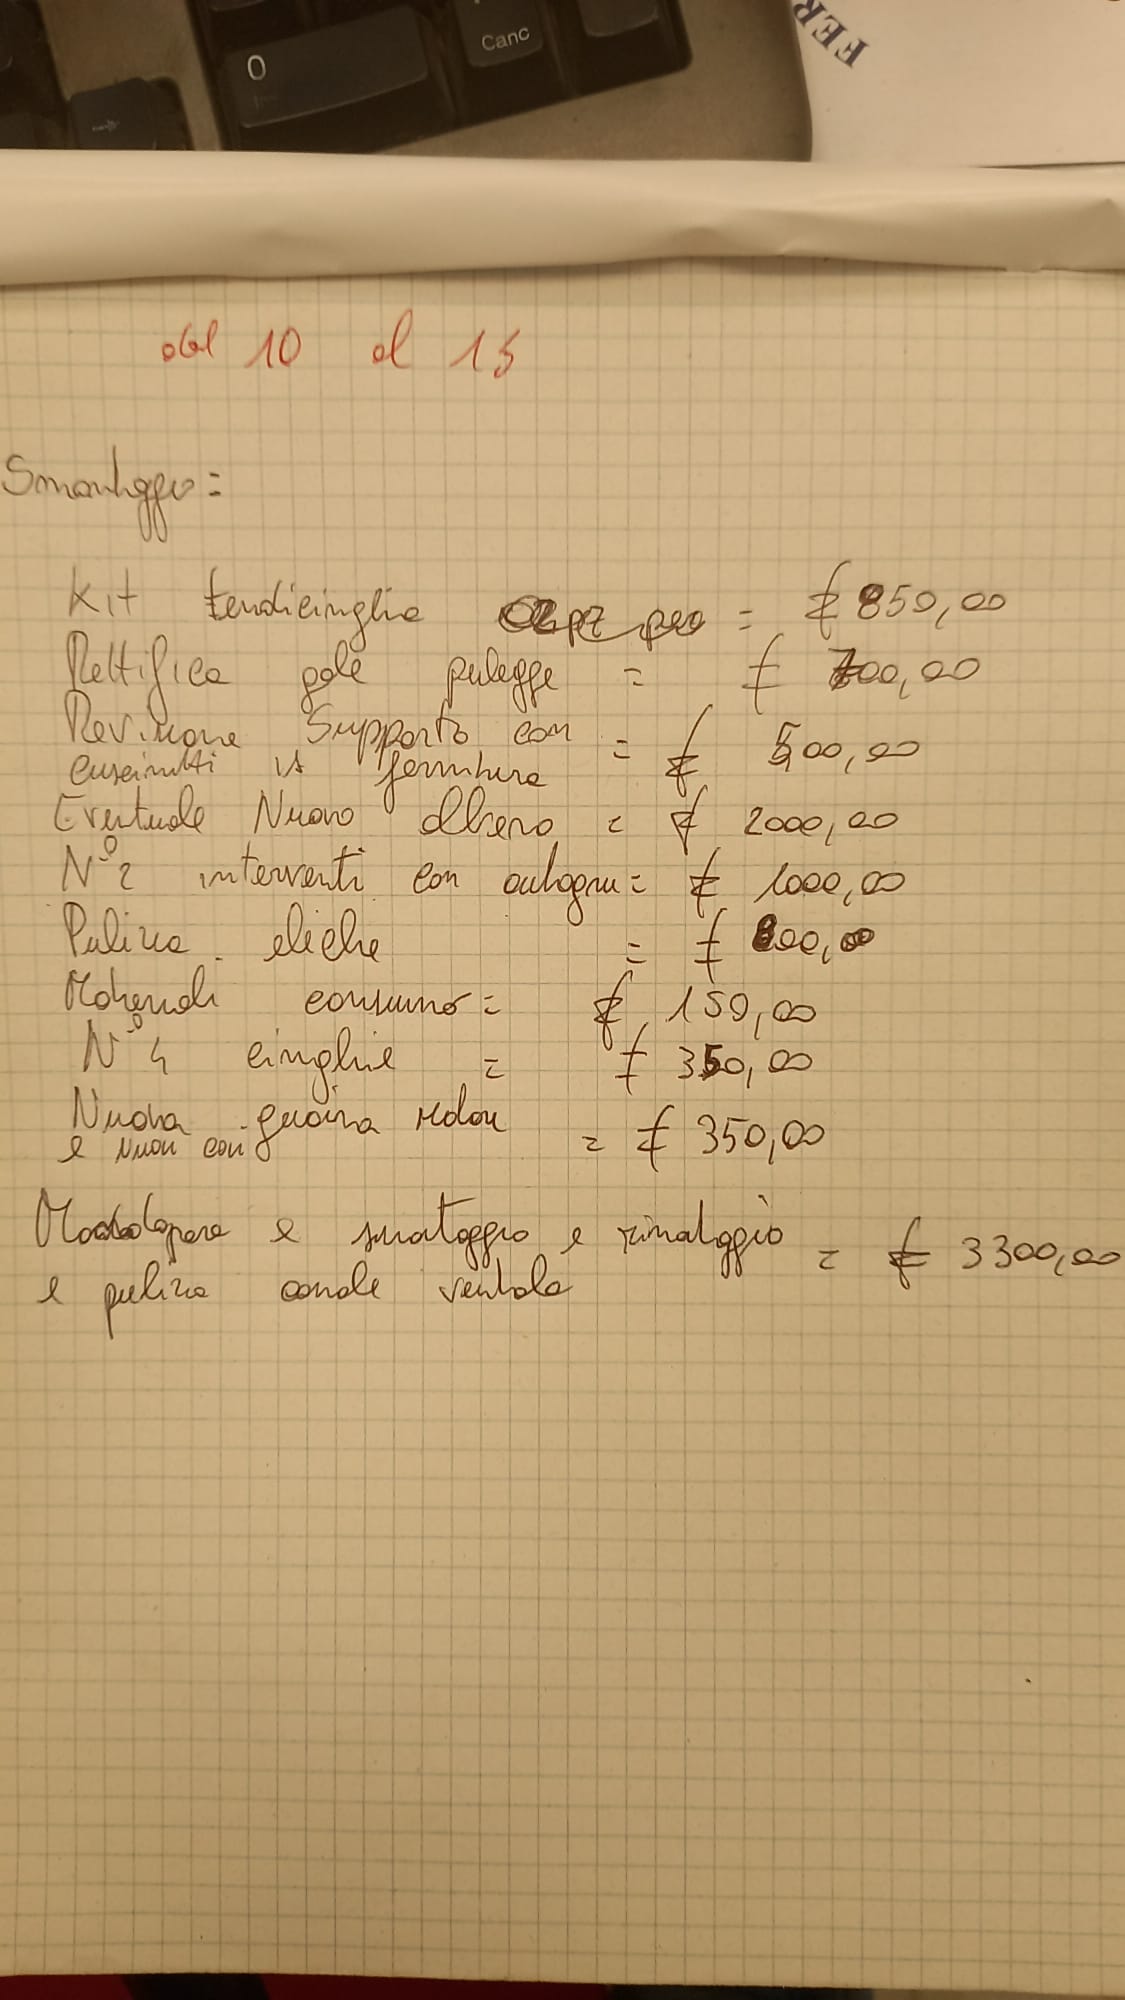 0
Canc
FER
dal 10 al 15
Smontaggio =
Kit tendicinghia = € 850,00
Rettifica gole pulegge = € 700,00
Revisione Supporto con = € 500,00
cuscinetti vs fornitura
Eventuale Nuovo albero = € 2000,00
N° 2 interventi con autogru = € 1000,00
Pulizia eliche = € 800,00
Materiali consumo = € 150,00
N° 4 cinghie = € 350,00
Nuova guaina = € 350,00
e nuovi
e smontaggio e rimontaggio = € 3300,00
e pulizia canale ventola